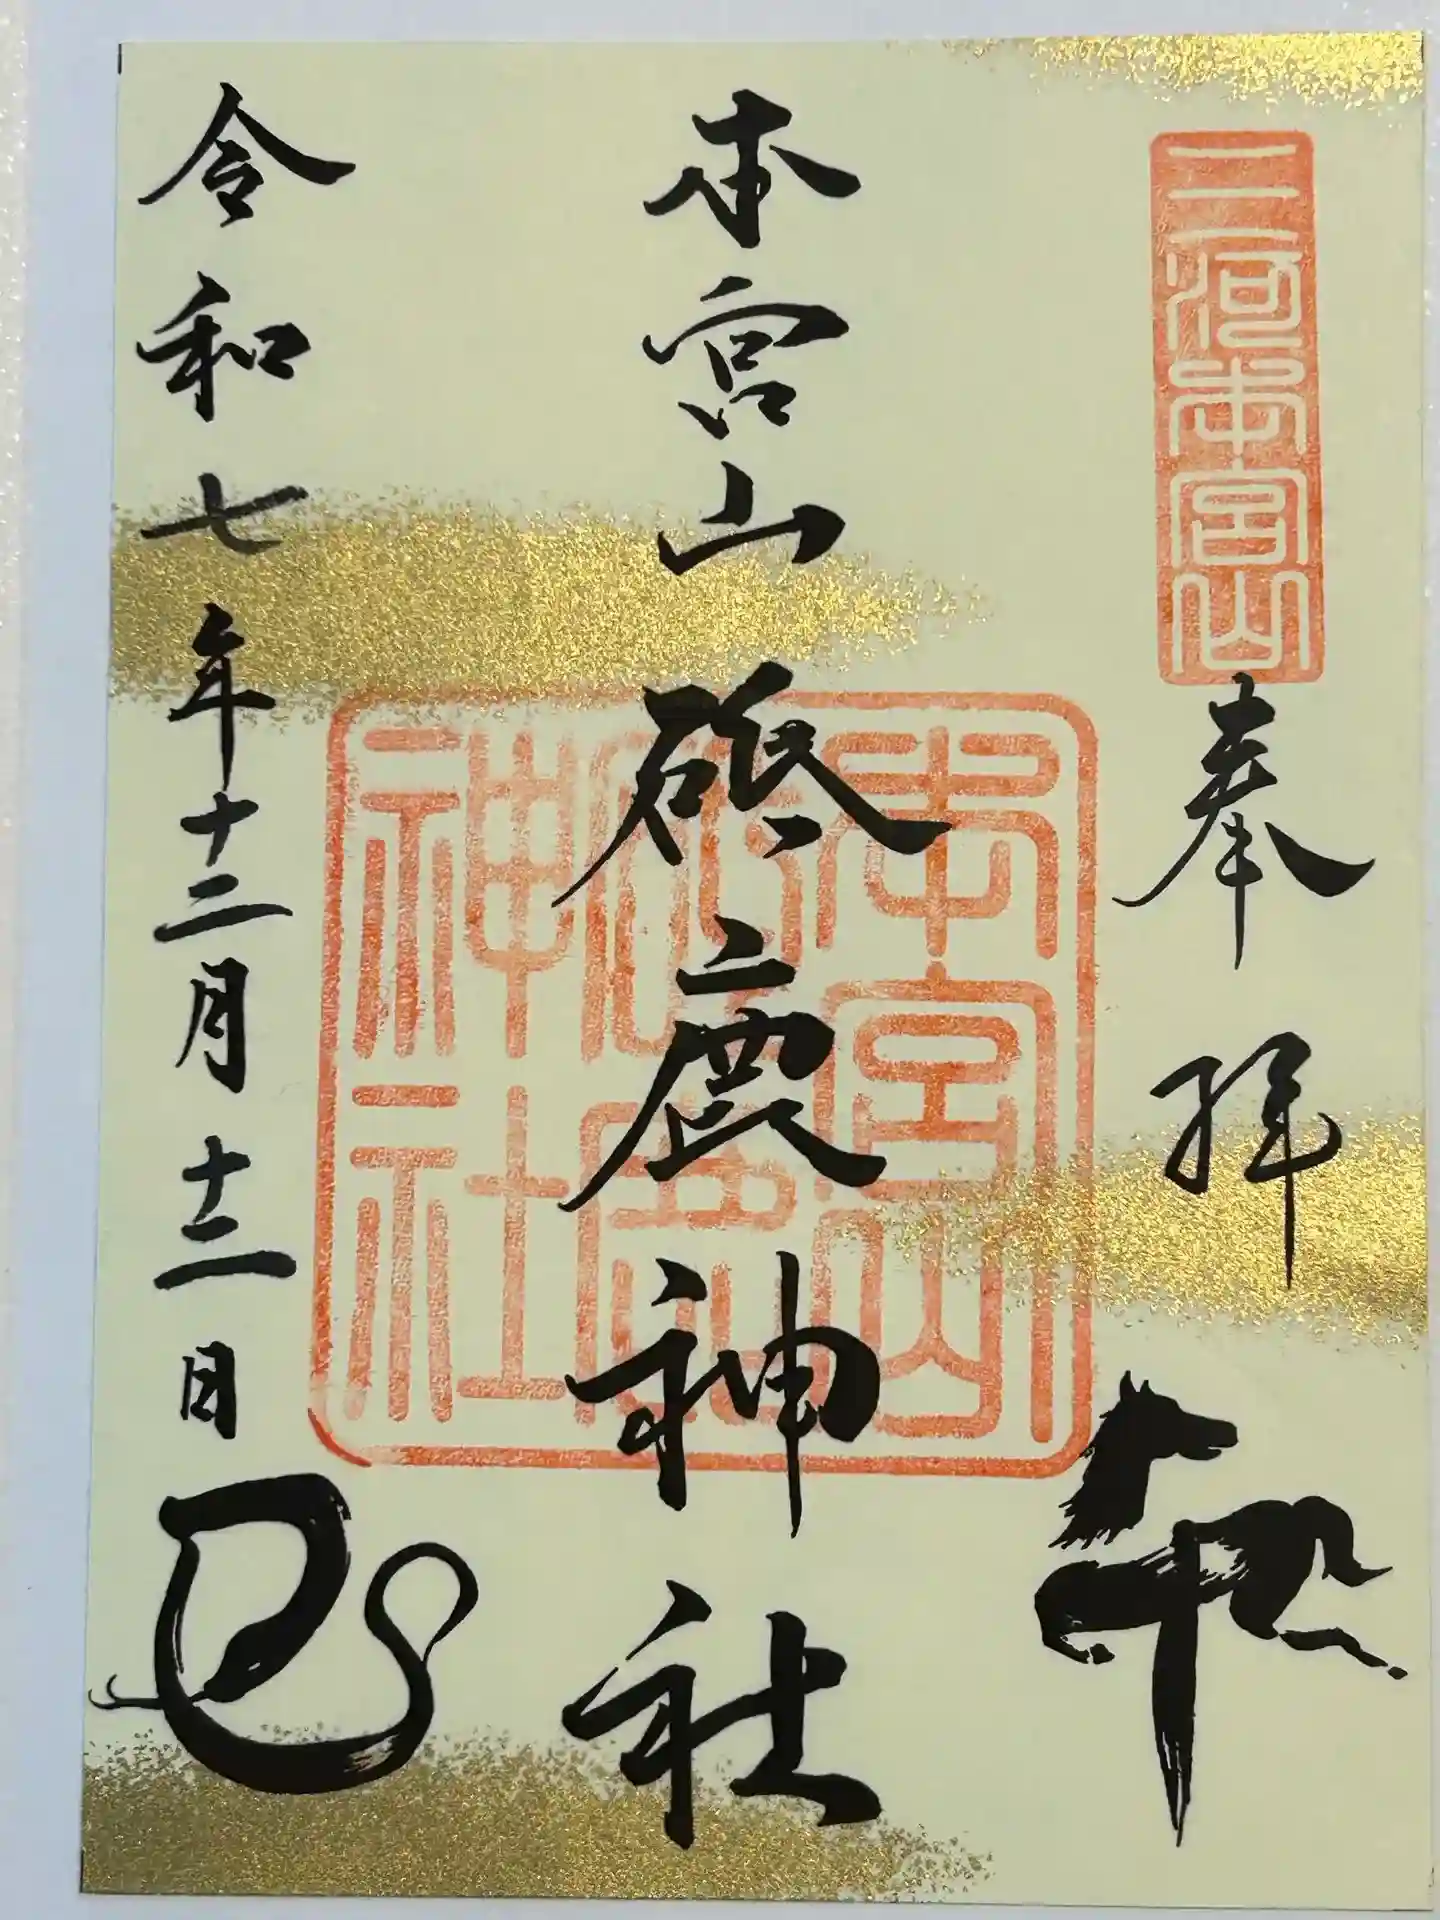 三河本宮山
奉拝
午
本宮山砥鹿神社
本宮山砥鹿神社
令和七年十二月十二日
巳